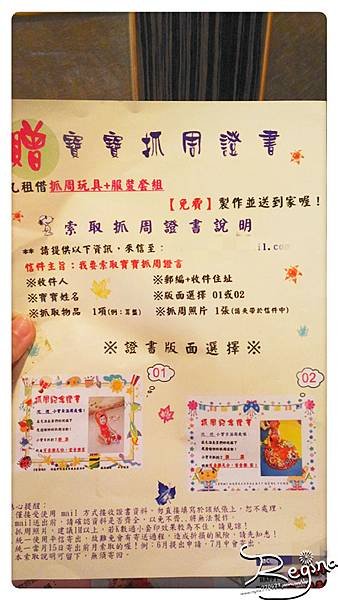 贈 寶寶抓周證書
凡租借抓周玩具+服裝套組
【免費】製作並送到家喔！
索取抓周證書說明
** 請提供以下資訊，來信至：
il.com
信件主旨：我要索取寶寶抓周證書
※收件人
※郵編+收件住址
※寶寶姓名
※版面選擇 01或02
※抓取物品 1項(例：算盤)
※抓周照片 1張(請夾帶於信件中)
※ 證書版面選擇 ※
01
02
抓周紀念證書
抓周紀念證書
心提醒：
僅接受使用 mail 方式接收證書資料，勿直接填寫於該紙張上，恕不處理。
mail送出前，請確認資料是否齊全，以免不齊，將無法製作。
抓周照片，建議1M以上，若畫數過小套印效果較為不佳，請見諒！
統一使用平信寄出，故難免會有寄送過程，造成折損的風險，請先知悉！
統一當月15日寄出前月索取的喔！例：6月提出申請，7月中會寄出。
本索取說明可留下，無須寄回。
Regina